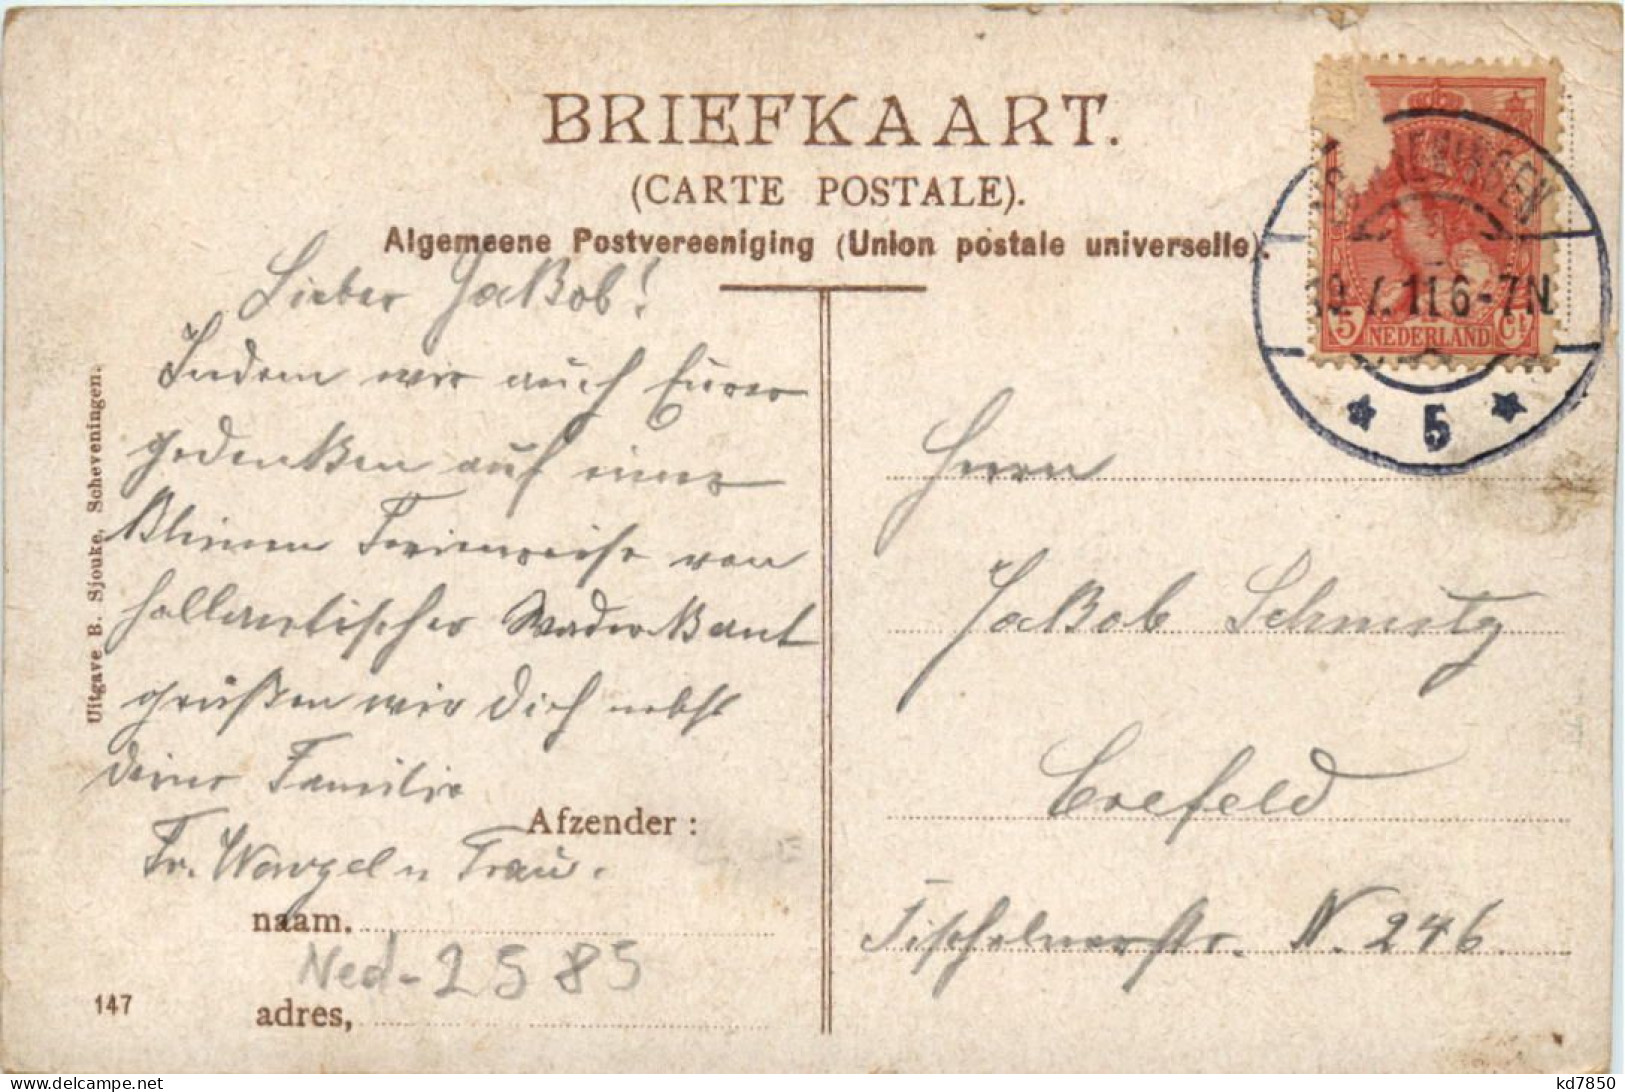 BRIEFKAART.
(CARTE POSTALE).
Algemeene Postvereeniging (Union postale universelle).
NEDERLAND
5 Ct
.7.11 6-7N
5
Lieber Jakob!
Indem wir auch Eurer
gedenken auf einer
kleinen Ferienreise von
holländischer
grüßen wir Dich nebst
deiner Familie
Fr. u Frau.
Afzender:
naam,
Ned-2585
adres,
147
Uitgave B. Sjouke, Scheveningen.
Herrn
Jakob Schmitz
Crefeld
Fischelnerstr. N. 246.
delcampe.net
kd7850